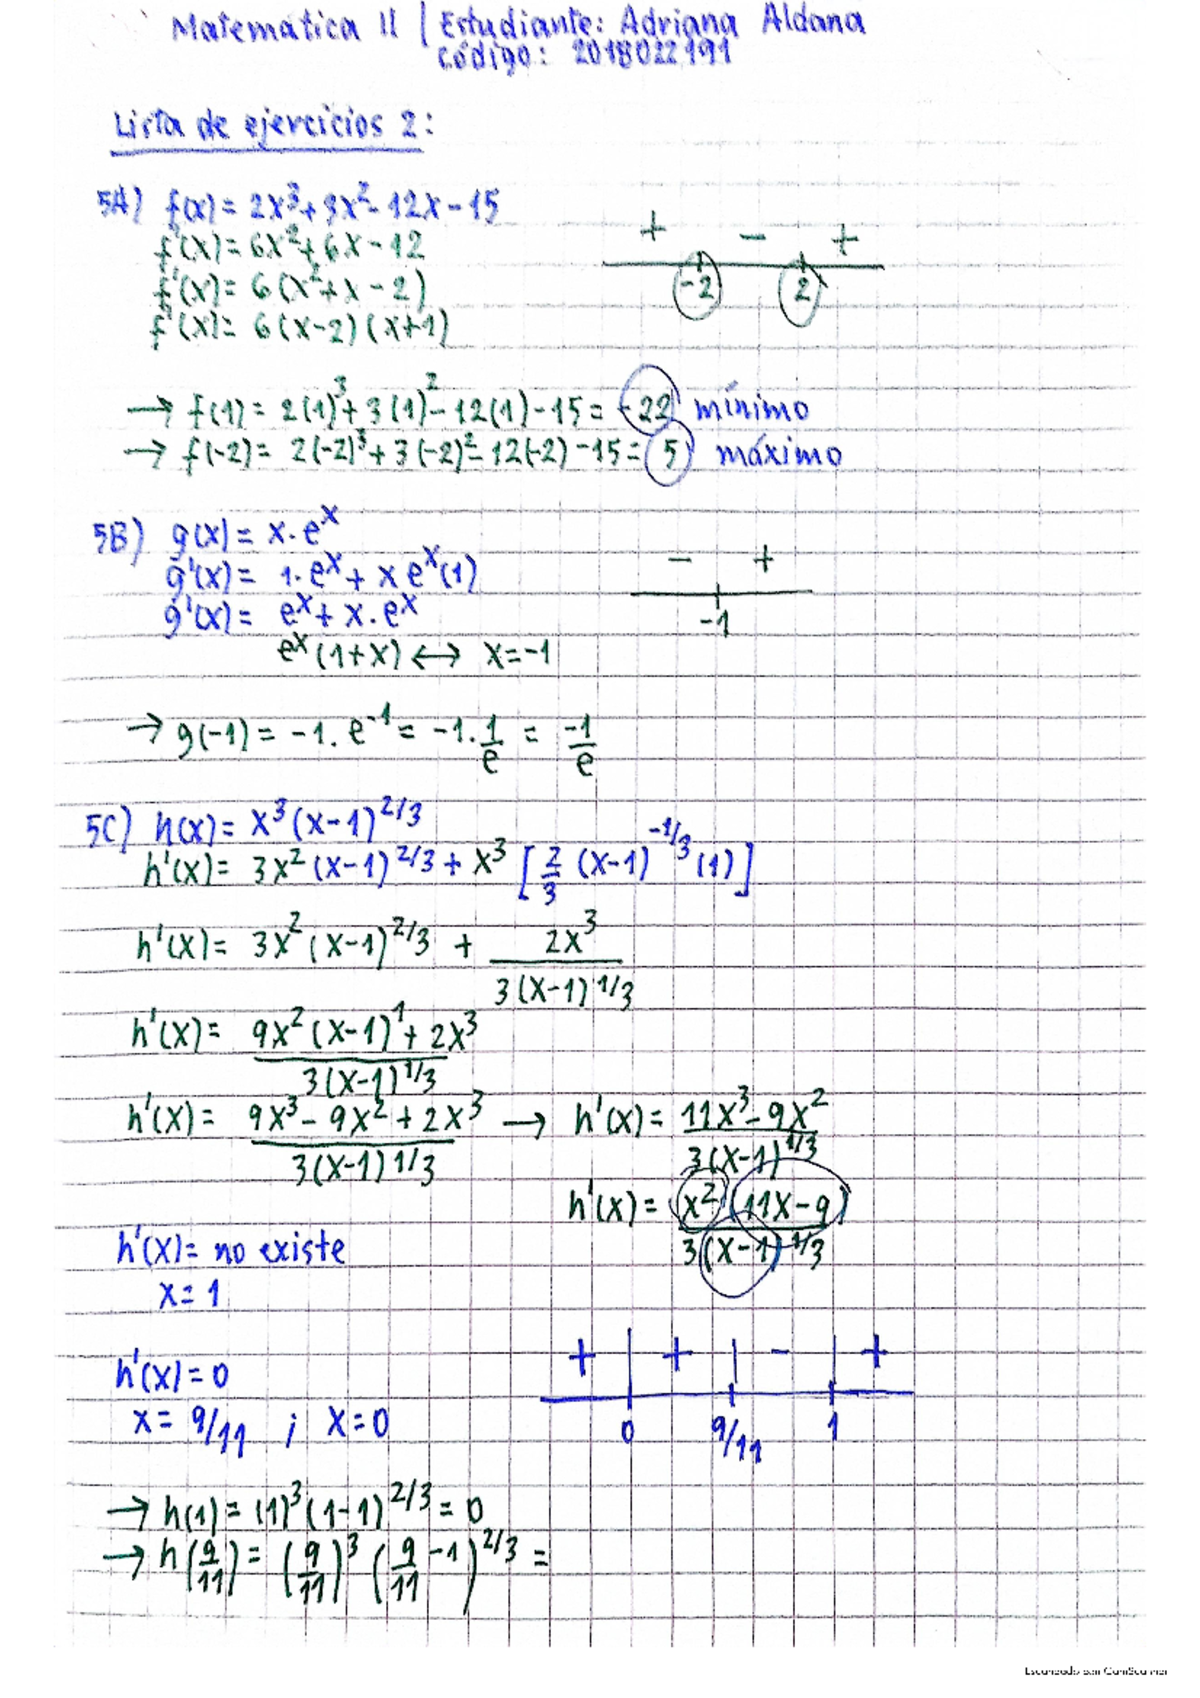 Matematica II | Estudiante: Adriana Aldana
Código: 2018022191
Lista de ejercicios 2:
5A) f(x) = 2x³+3x²-12x-15
f'(x) = 6x²+6x-12
f'(x) = 6(x²+x-2)
f'(x) = 6(x-2)(x+1)
+ - +
-2 2
→ f(1) = 2(1)³+3(1)²-12(1)-15 = -22 mínimo
→ f(-2) = 2(-2)³+3(-2)²-12(-2)-15 = 5 máximo
5B) g(x) = x.e^x
g'(x) = 1.e^x + x e^x(1)
g'(x) = e^x + x.e^x
e^x(1+x) ↔ x=-1
- +
-1
→ g(-1) = -1.e^-1 = -1.1/e = -1/e
5C) h(x) = x³(x-1)^2/3
h'(x) = 3x²(x-1)^2/3 + x³ [2/3 (x-1)^-1/3 (1)]
h'(x) = 3x²(x-1)^2/3 + 2x³/3(x-1)^1/3
h'(x) = 9x²(x-1)^1+2x³/3(x-1)^1/3
h'(x) = 9x³-9x²+2x³/3(x-1)^1/3 → h'(x) = 11x³-9x²/3(x-1)^1/3
h'(x) = x²(11x-9)/3(x-1)^1/3
h'(x) = no existe
x = 1
h'(x) = 0
x = 9/11 ; x=0
+ + - +
0 9/11 1
→ h(1) = (1)³(1-1)^2/3 = 0
→ h(9/11) = (9/11)³ (9/11 -1)^2/3 =
Escaneado con CamScanner